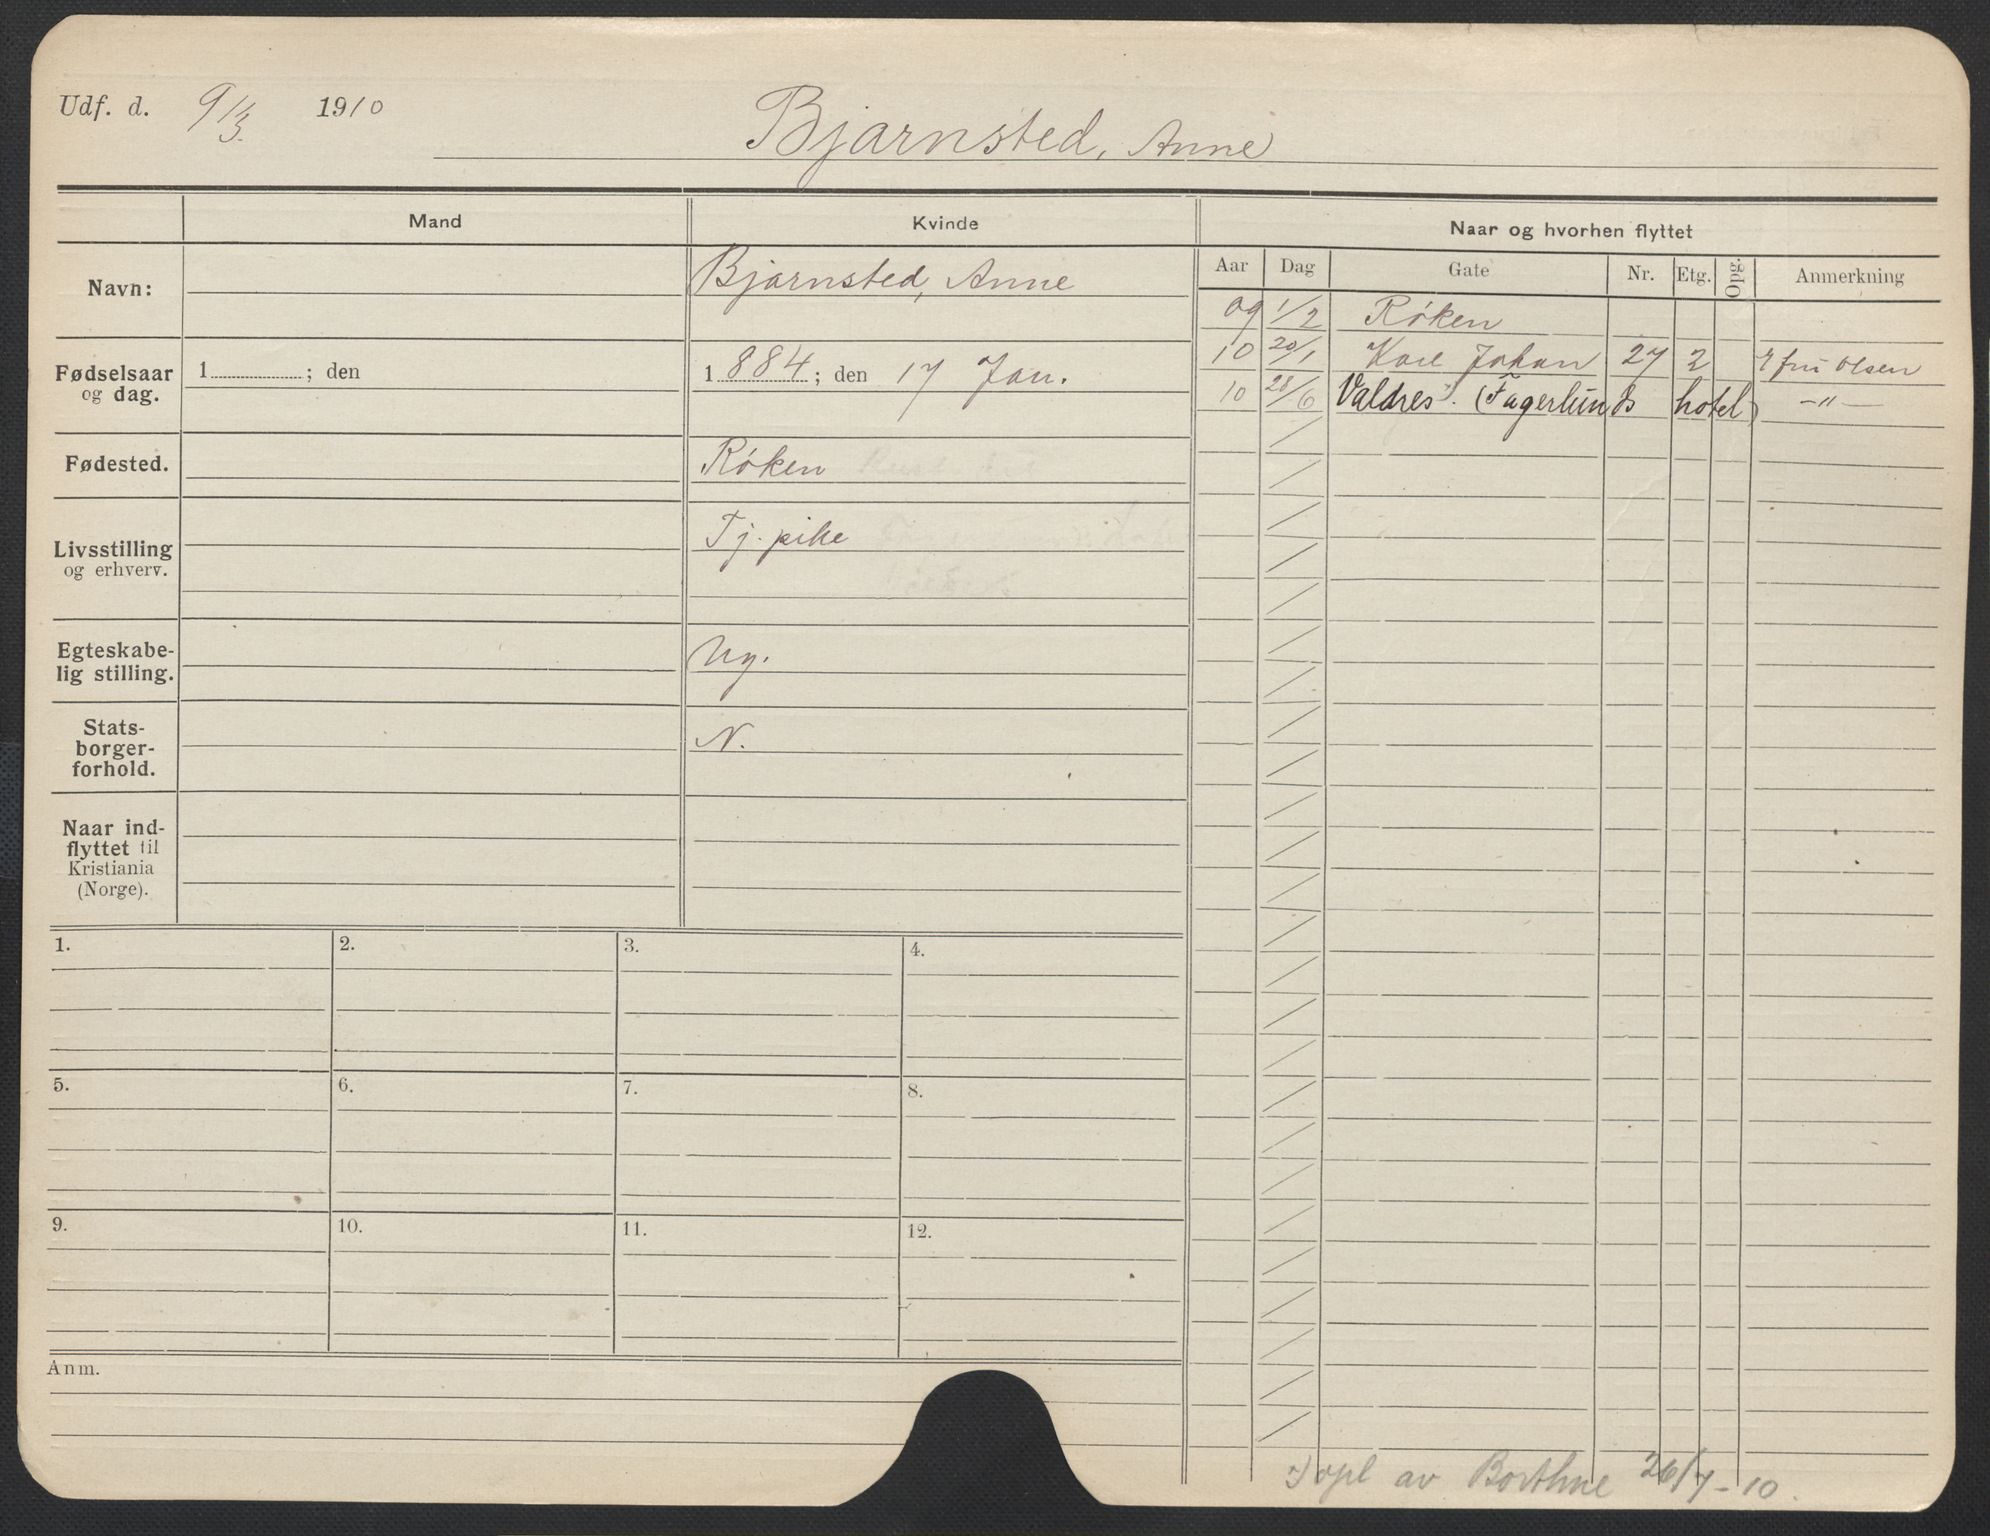 Udf. d. 9/3. 1910
Bjarnsted, Anne
Mand Kvinde Naar og hvorhen flyttet
Aar Dag Gate Nr. Etg. Opg. Anmerkning
Navn: Bjarnsted, Anne
09 1/2 Røken
10 20/1 Karl Johan 27 2 fru Olsen
10 28/6 Valdres. (Fagerlunds hotel) —"—
Fødselsaar og dag.
1 ; den
1884; den 17 Jan.
Fødested. Røken
Livsstilling og erhverv. Tj. pike
Egteskabe-
lig stilling. Ug.
Stats-
borger-
forhold. N.
Naar ind-
flyttet til
Kristiania
(Norge).
1. 2. 3. 4.
5. 6. 7. 8.
9. 10. 11. 12.
Anm.
opl av Borthne 26/7-10.